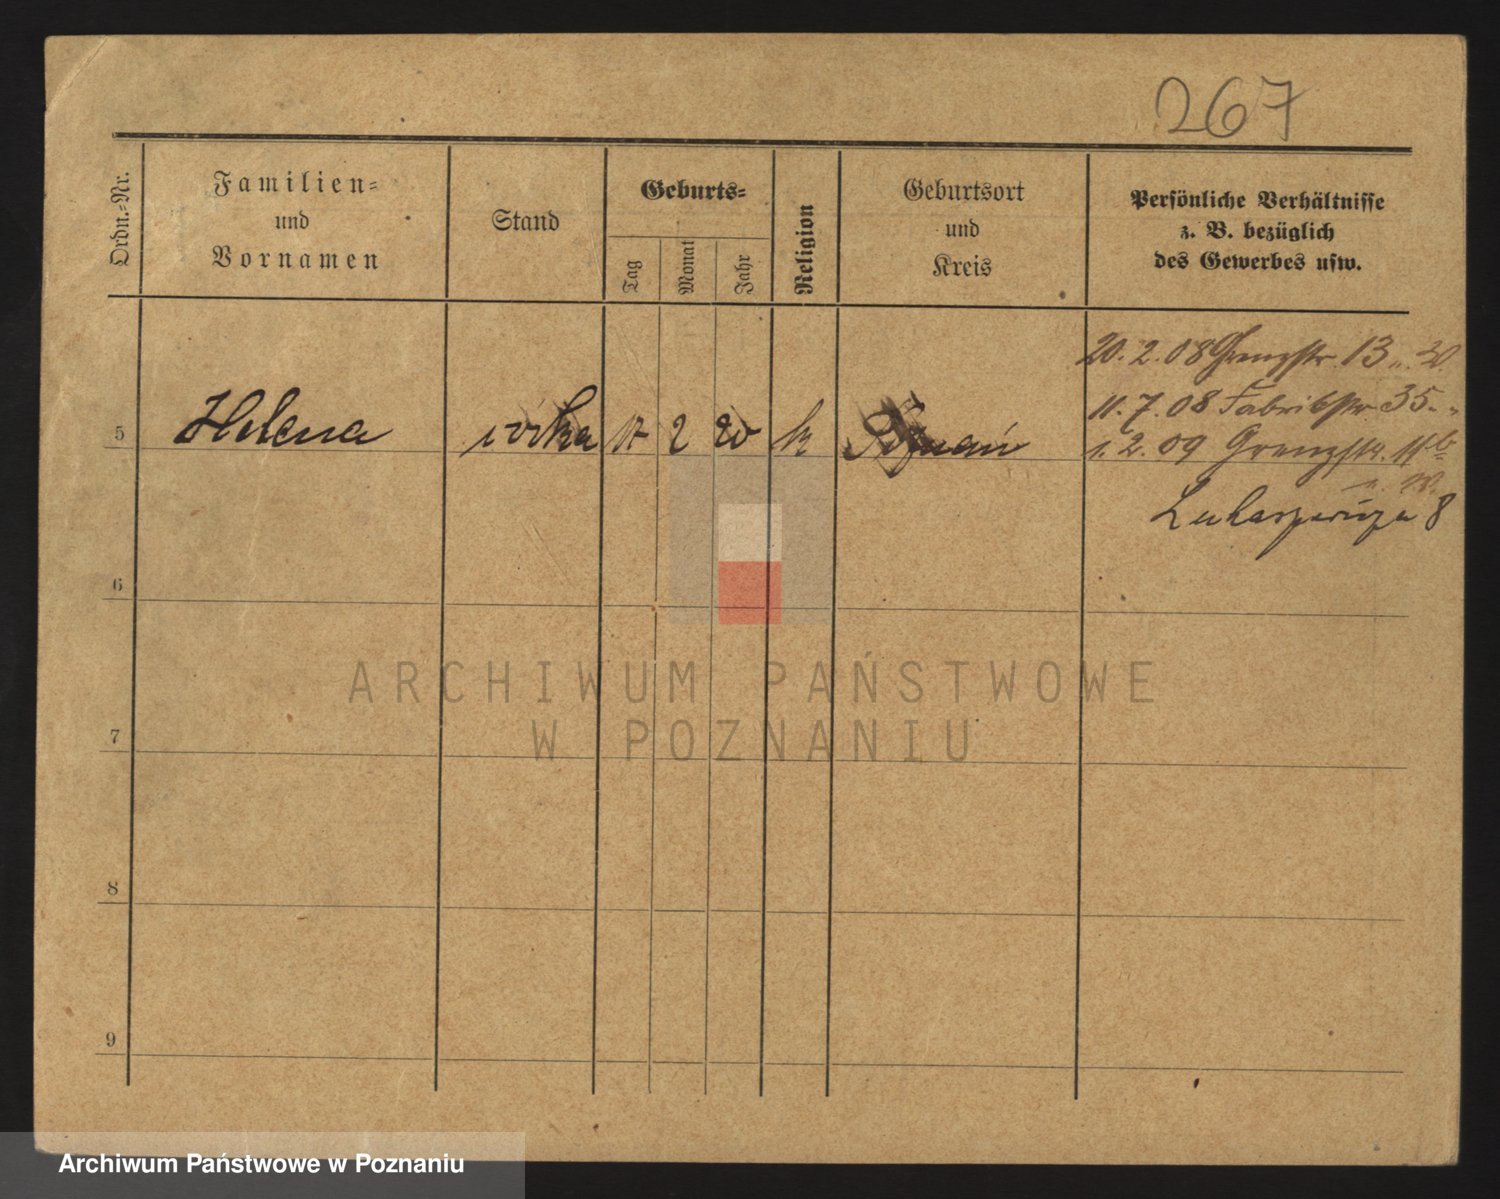 267
Ordn.-Nr.
Familien-
und
Vornamen
Stand
Geburts-
Tag
Monat
Jahr
Religion
Geburtsort
und
Kreis
Persönliche Verhältnisse
z. B. bezüglich
des Gewerbes usw.
20. 2. 08 Grenzstr. 13
11. 7. 08 Fabrikstr 35
1. 2. 09 Grenzstr.
5 Helena córka 2 20 k Poznań
8
6
7
8
9
ARCHIWUM PAŃSTWOWE
W POZNANIU
Archiwum Państwowe w Poznaniu